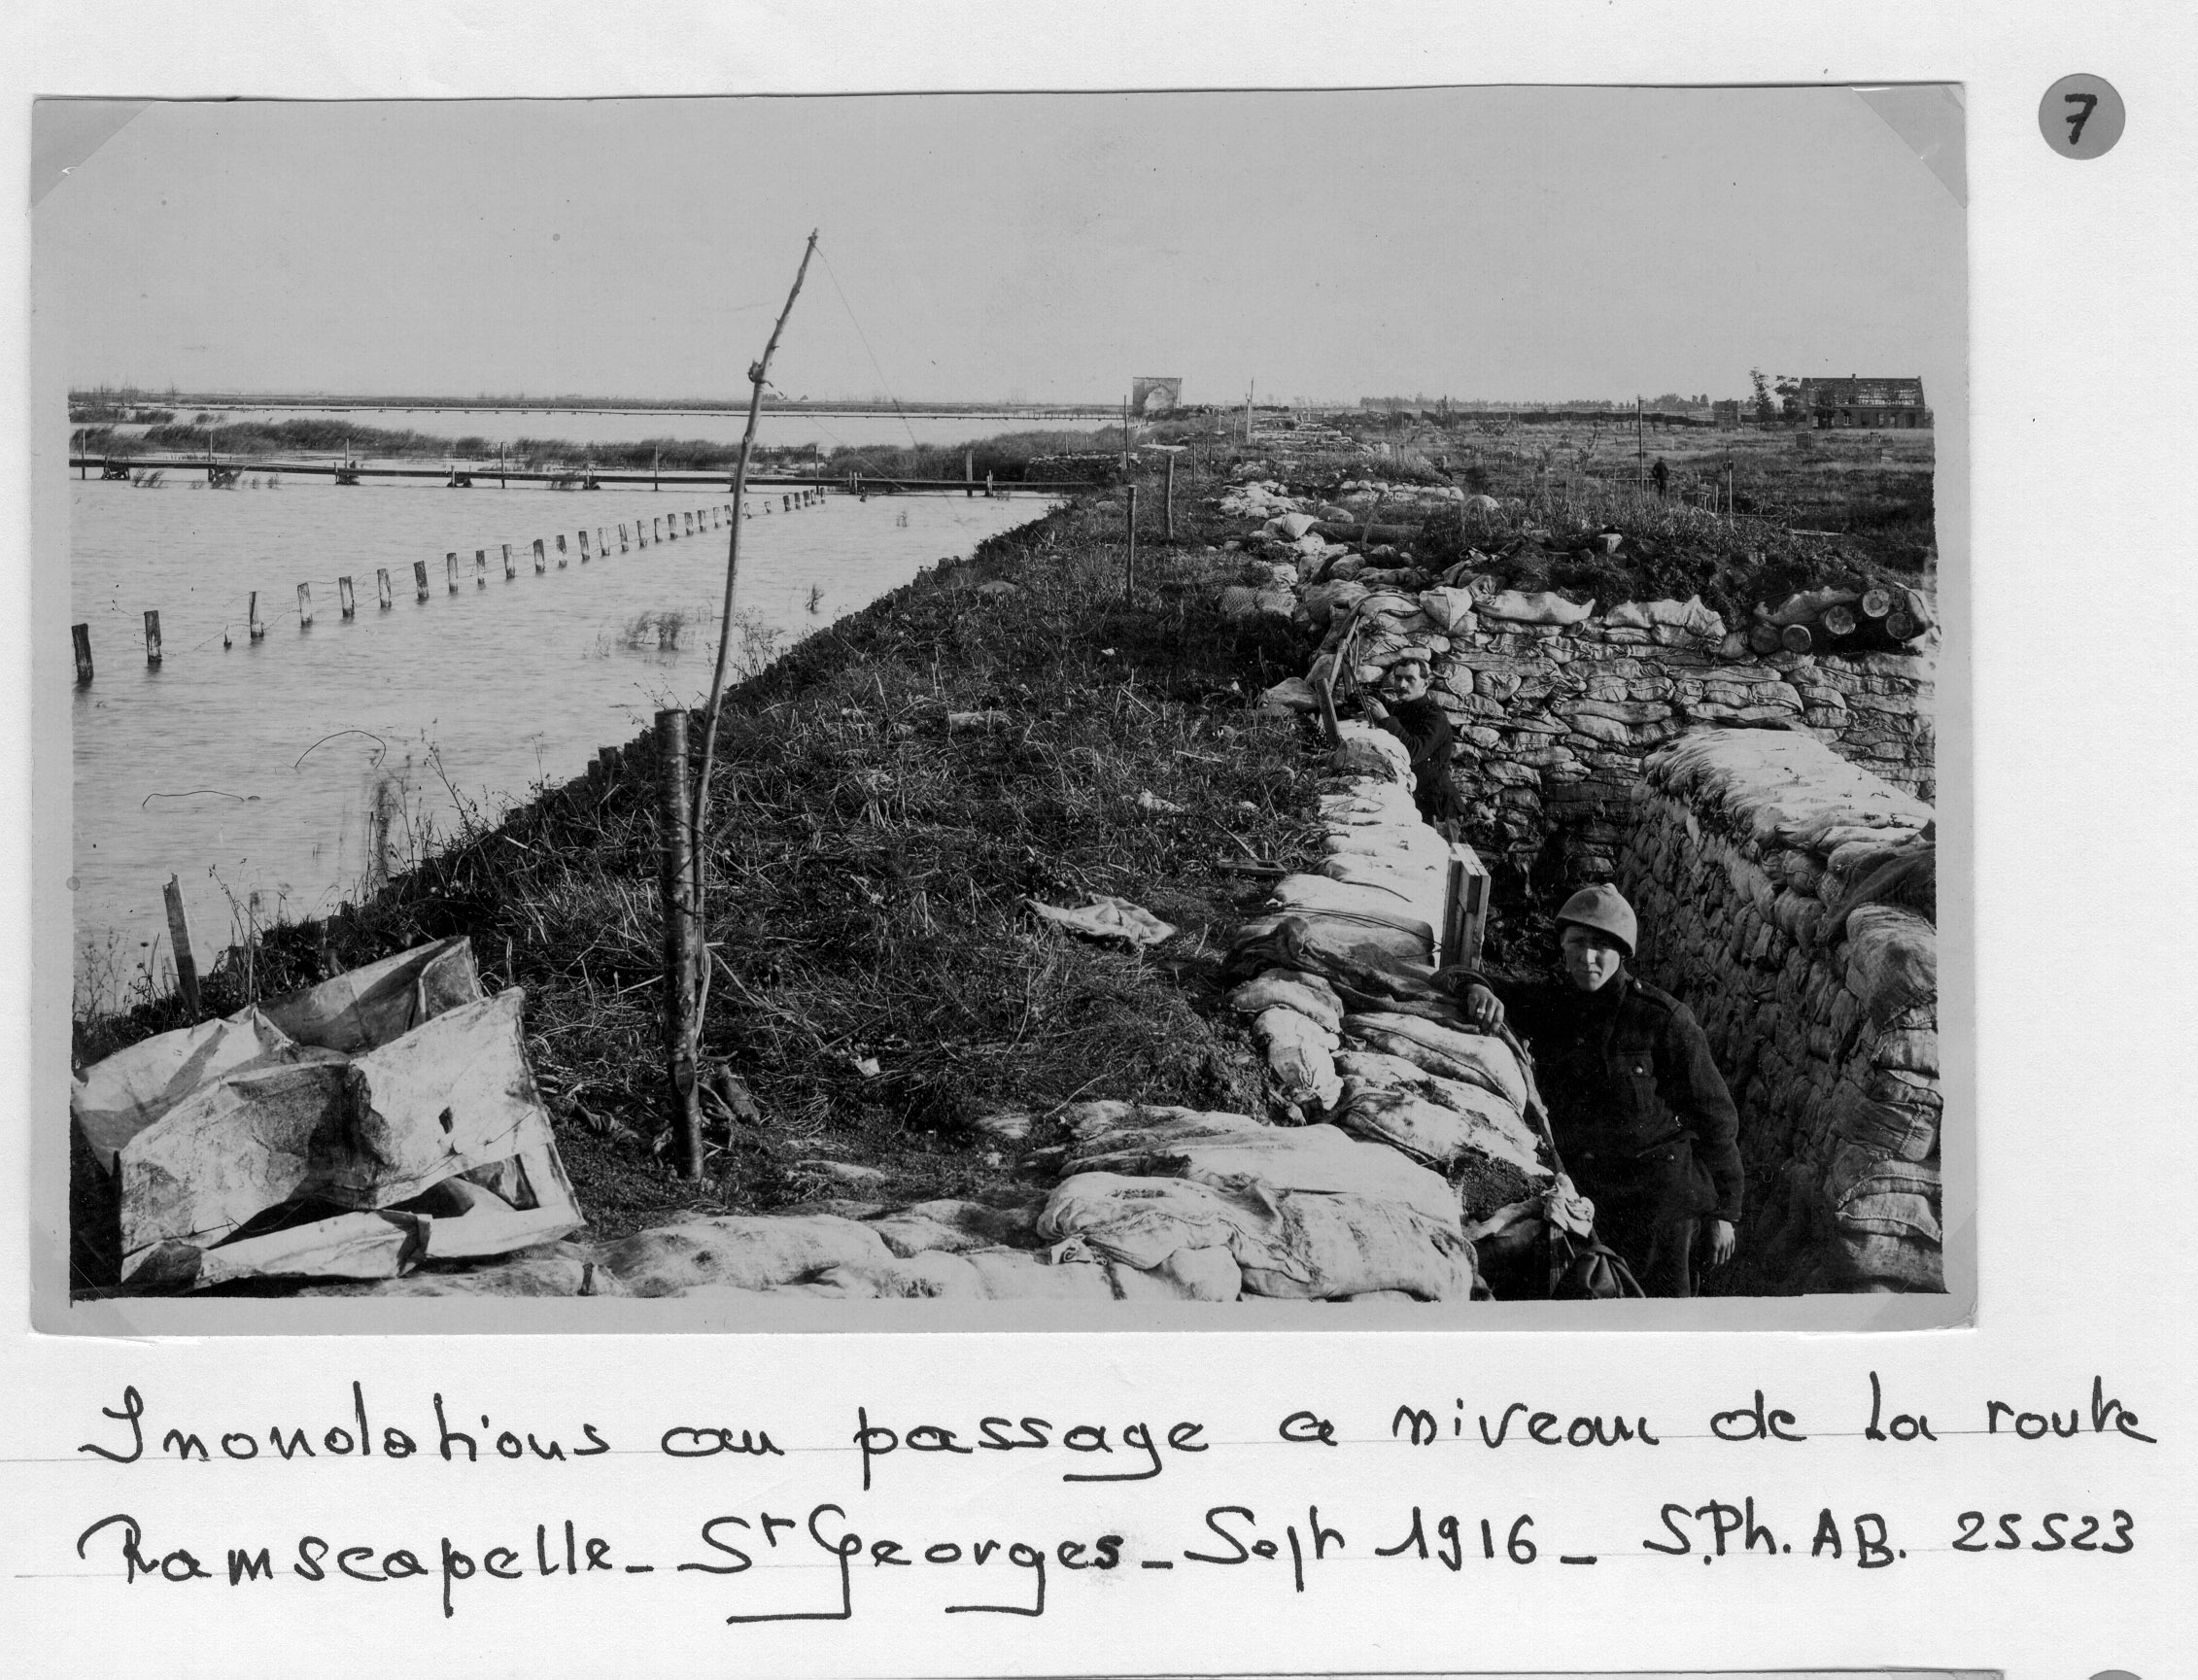 7
Inondations au passage a niveau de la route
Ramscapelle_ St Georges_ Sept 1916_ S.Ph.AB. 25523